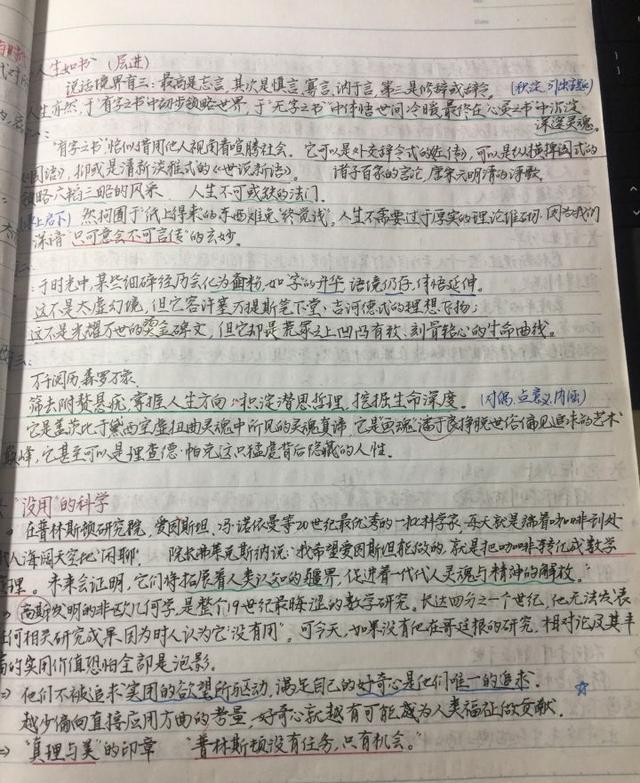 人生如书"（层进）
说话境界有三：最高是忘言，其次是慎言、寡言、讷于言，第三是修辞或辞令。（积淀，引出主题）
人生亦然，于"有字之书"中初步领略世界，于"无字之书"中体悟世间冷暖，最终在"心灵之书"中沉淀
深邃灵魂。
"有字之书"恰似借用他人视阈看喧腾社会。它可以是外交辞令式的《左传》，可以是纵横捭阖式的
《国语》，抑或是清新淡雅式的《世说新语》。诸子百家的言论，唐宋元明清的诗歌
领略六韬三略的风采 人生不可或缺的法门。
（承上启下）然拘囿于"纸上得来"的东西难免"终觉浅"，人生不需要过于厚实的理论维砌，因为我们
深谙"只可意会不可言传"的玄妙。
于时光中，某些细碎经历会化为面粉，如"字"的升华，语境仍存，体悟延伸。
这不是太虚幻境，但它容许塞万提斯笔下堂·吉诃德式的理想飞扬；
这不是光耀万世的奠金碑文，但它却是荒冢之上凹凸有致、刻骨铭心的生命曲线。
万千阅历 森罗万象
筛去附赘悬疣，掌握人生方向，积淀潜思哲理，挖掘生命深度。（对偶，点意义、内涵）
它是盖茨比于黛西空虚扭曲灵魂中所见的灵魂真谛，它是"画魂"潘于良挣脱世俗偏见追求的艺术
巅峰，它甚至可以是理查德·帕克这只猛虎背后隐藏的人性。
"没用"的科学
在普林斯顿研究院，爱因斯坦、冯·诺依曼等20世纪最优秀的一批科学家，每天就是端着咖啡到处
找人海阔天空地"闲聊"。 院长弗莱克斯纳说："我希望爱因斯坦能做的，就是把咖啡转化成数学
定理。未来会证明，它们将拓展着人类认知的疆界，促进着一代代人灵魂与精神的解放。"
高斯发明的非欧几何学，是整个19世纪最晦涩的数学研究。长达四分之一个世纪，他无法发表
任何相关研究成果，因为时人认为它"没有用"。可今天，如果没有他在哥廷根的研究，相对论及其丰
富的实用价值恐怕全部是泡影。
他们不被追求实用的欲望所驱动，满足自己的好奇心是他们唯一的追求。
越少偏向直接应用方面的考量，好奇心就越有可能成为人类福祉做贡献。
"真理与美"的印章 "普林斯顿没有任务，只有机会。"